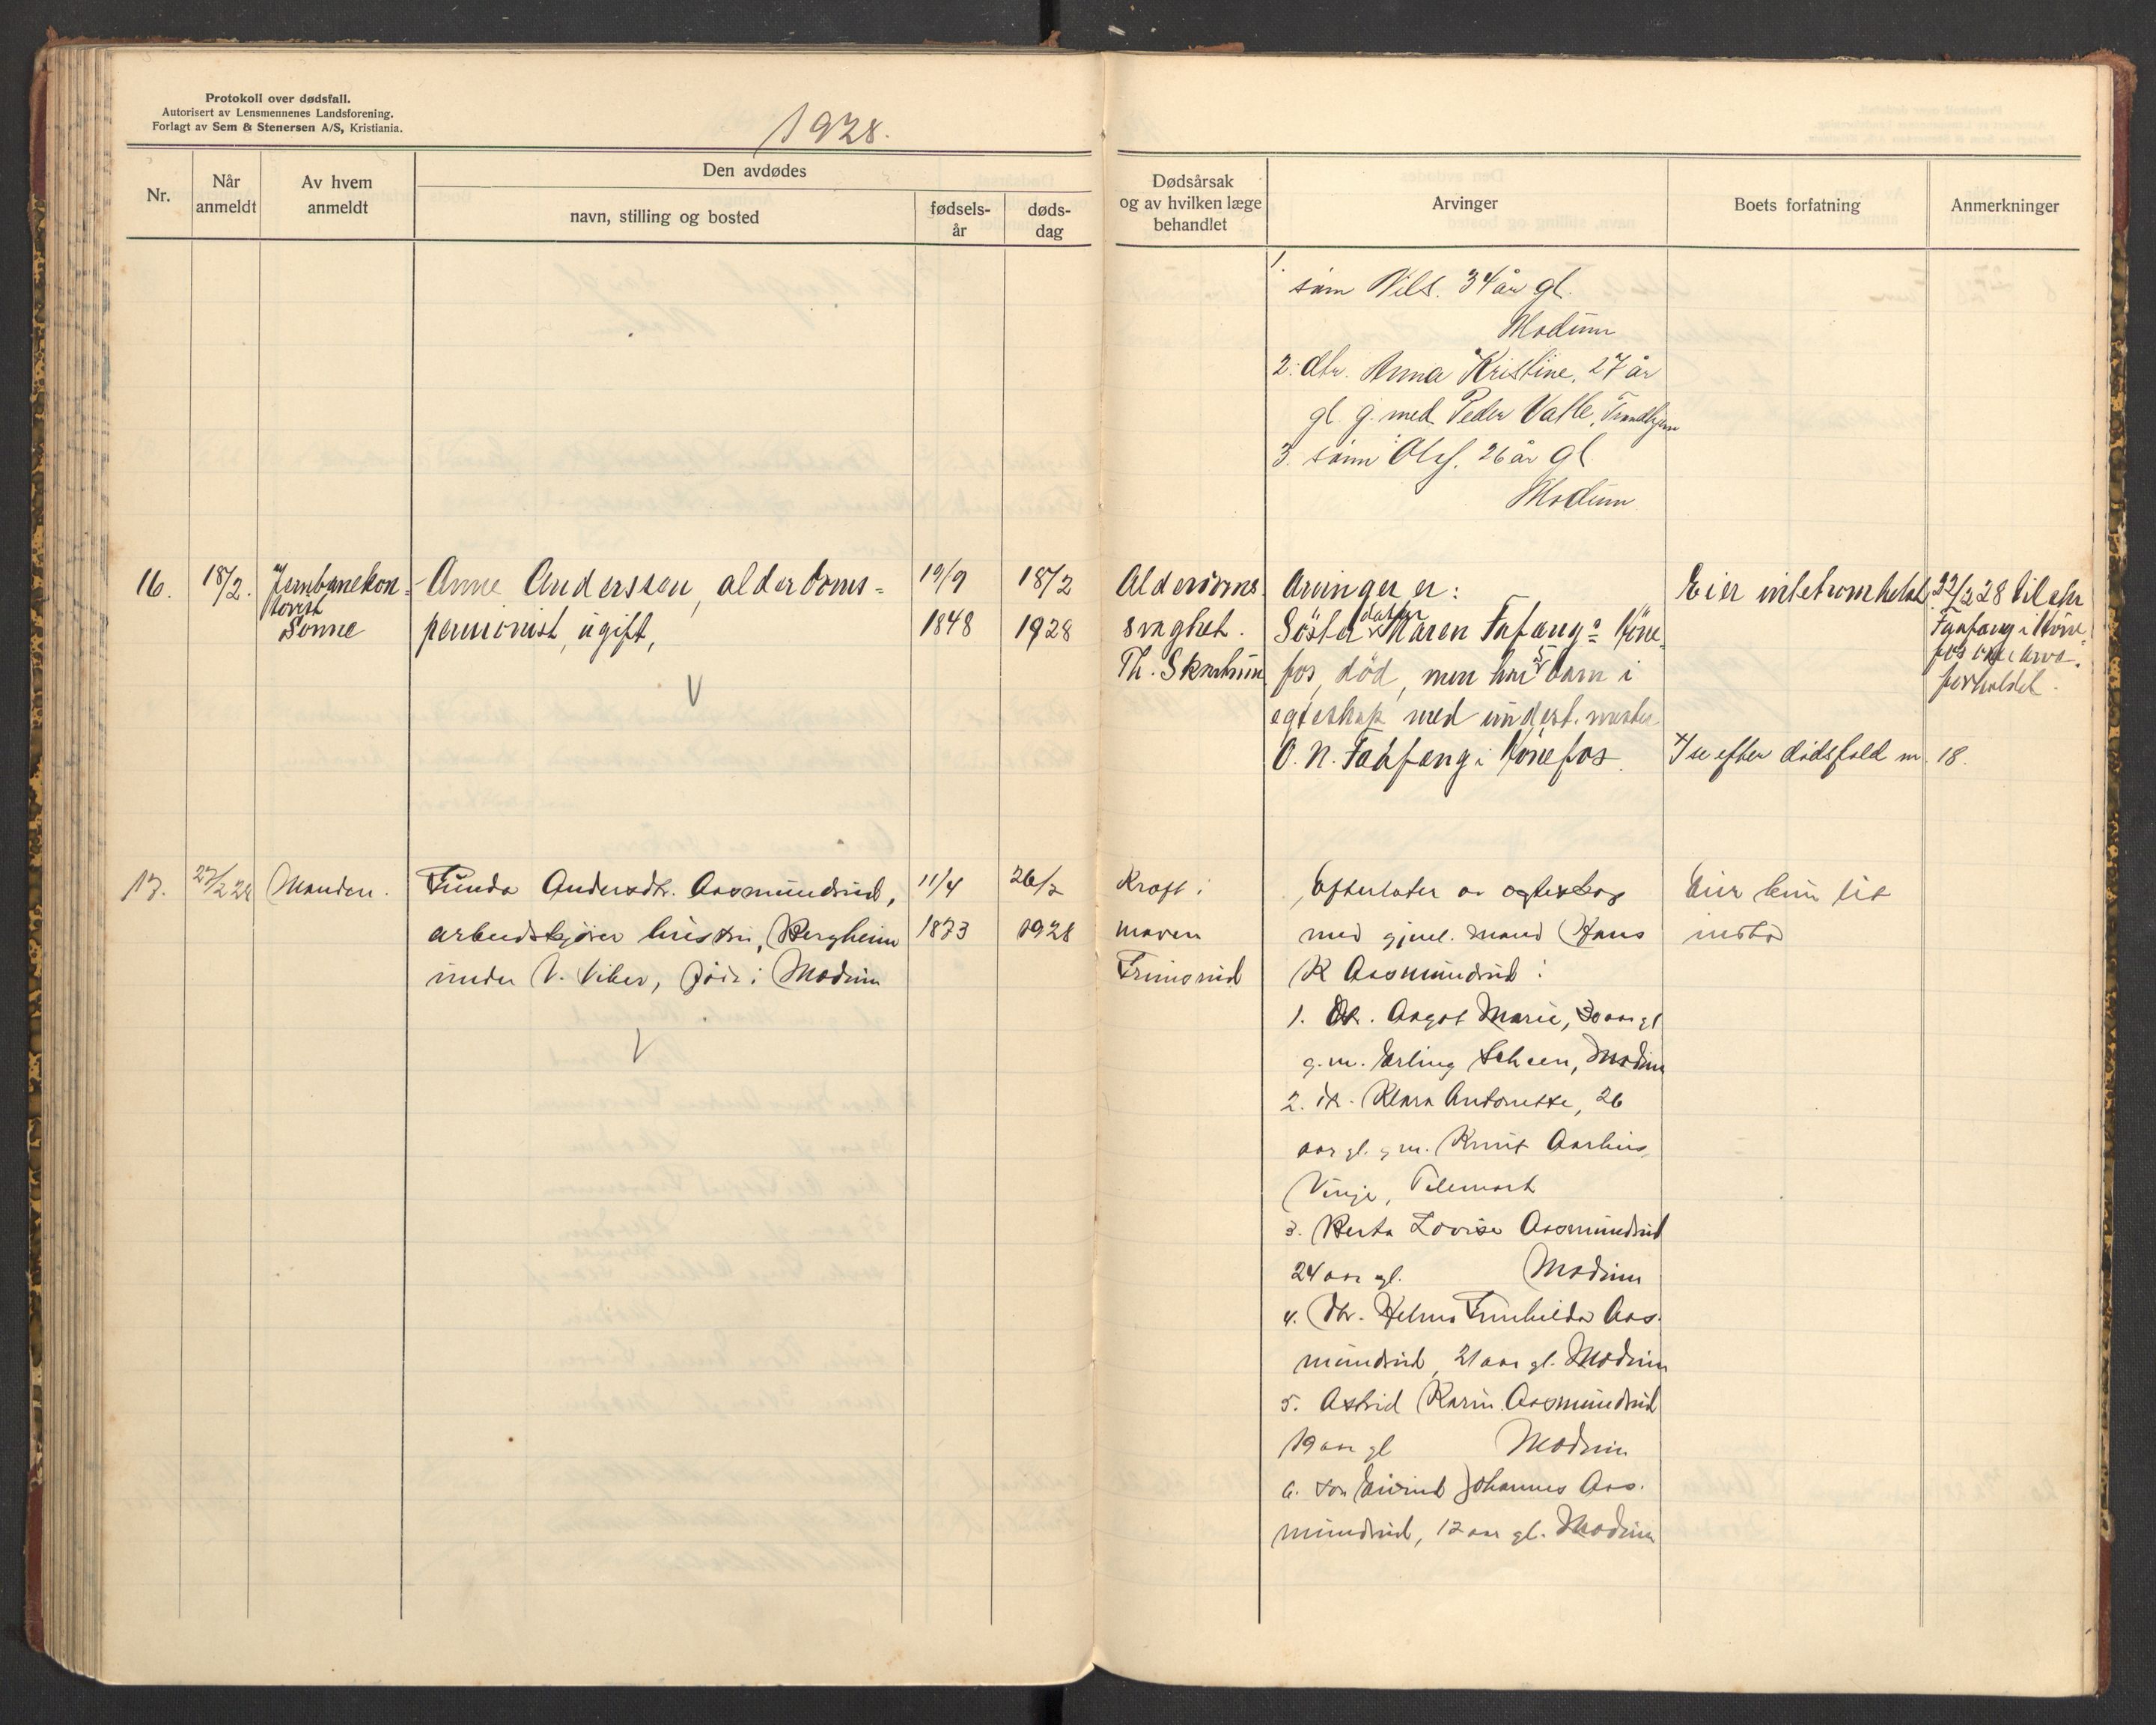 Protokoll over dødsfall.
Autorisert av Lensmennenes Landsforening.
Forlagt av Sem & Stenersen A/S, Kristiania.
1928.
Nr.
Når anmeldt
Av hvem anmeldt
Den avdødes
navn, stilling og bosted
fødsels-år
døds-dag
Dødsårsak og av hvilken læge behandlet
Arvinger
Boets forfatning
Anmerkninger
1. sønn Nils. 34 år gl.
Modum
2. dtr. Anna Kristine, 27 år
gl. g. med Peder Valle, Trondhjem
3. sønn Olaf. 26 år gl
Modum
16. 18/2. Jernbanekon-
torist
Sønne
Anne Anderssen, alderdoms-
pensionist, ugift,
19/9
1848
18/2
1928
Alderdoms
svaghet.
Th. Skrahun
Arvinger er:
Søsterdatter Karen Fapeng, Høne-
fos, död, men har 5 barn i
egteskap med underst. mester
O. N. Fapeng i Hønefos
Eier intet somhelst
22/2 28 til
i Høne-
fos
forholdet.
Se efter dødsfald nr. 18.
17. 27/2 28 Manden.
Gunda Andersdtr. Aasmundrud,
arbeidskjører hustru, Bergheim
under V. Viker, i Modum
11/4
1873
26/2
1928
Kræft i
maven
Efterlater av egteskap
med gjenl. mand Hans
K Aasmundrud:
1. Dtr. Aagot Marie, 30 aar gl
g. m. Erling Scheen, Modum
2. dtr. Klara Antonette, 26
aar gl. g m. Knut Aarhus,
Vinje, Telemark
3. Berta Lovise Aasmundrud
24 aar gl. Modum
4. Dtr. Helma Gunhilda Aas-
mundrud, 21 aar gl. Modum
5. Astrid Karin Aasmundrud
19 aar gl Modum
6. søn Eivind Johannes Aas-
mundrud, 12 aar gl. Modum
Eier kun lit
indbo